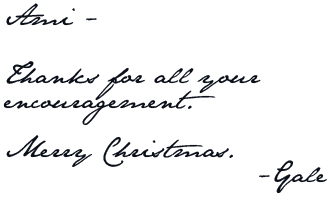 Ami -
Thanks for all your
encouragement.
Merry Christmas.
-Gale